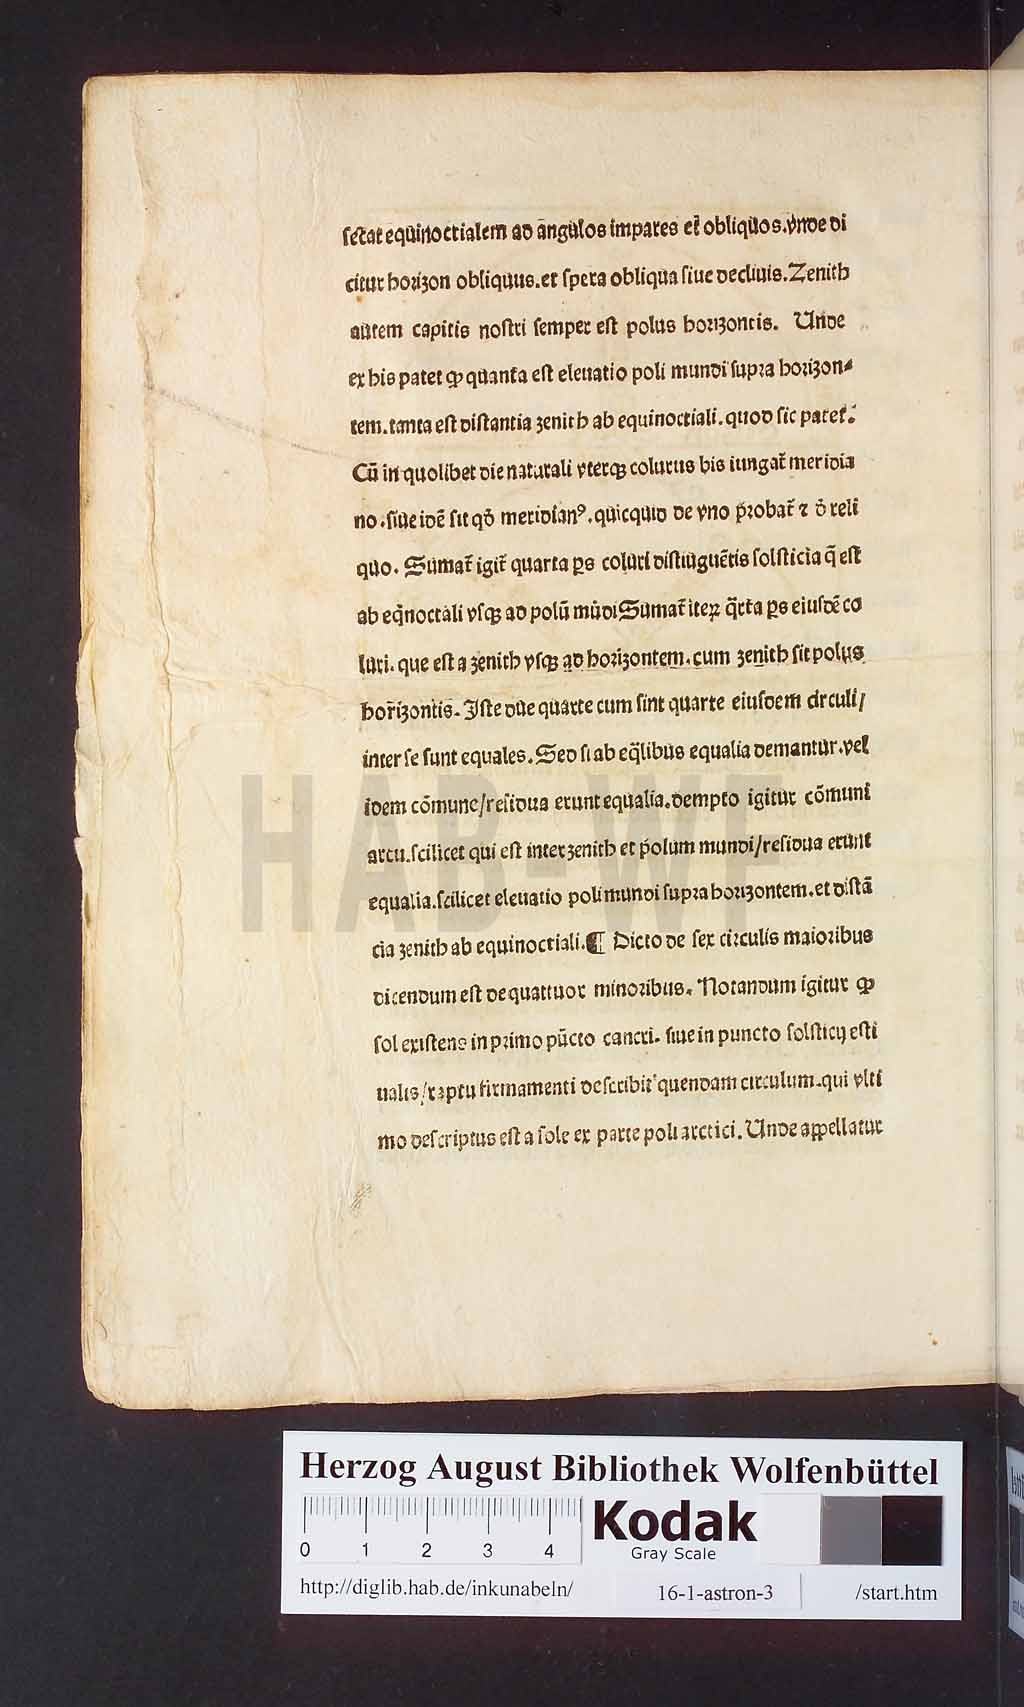 ſecat equinoctialem ad angulos impares et obliquos.vnde di
citur horizon obliquus.et ſpera obliqua ſiue decliuis.Zenith
autem capitis noſtri ſemper eſt polus horizontis. Unde
ex his patet ꝙ quanta eſt eleuatio poli mundi ſupra horizon⸗
tem.tanta eſt diſtantia zenith ab equinoctiali.quod ſic patet.
Cū in quolibet die naturali vterqꝫ colurus bis iungat̃ meridia
no.ſiue idē ſit qd̓ meridianꝰ.quicquid de vno p̄robat̃ ⁊ d̓ reli
quo. Sumat̃ igit̃ quarta ꝑs coluri diſtiuguētis ſolſticia q̄ eſt
ab eq̄noctali vſqꝫ ad polū mūdi Sumat̃ iteꝝ q̄rta ꝑs eiuſdē co
luri.que eſt a zenith vſqꝫ ad horizontem.cum zenith ſit polus
horizontis. Iſte due quarte cum ſint quarte eiuſdem circuli/
inter ſe ſunt equales.Sed ſi ab eq̄libus equalia demantur.vel
idem cōmune/reſidua erunt equalia.dempto igitur cōmuni
arcu.ſcilicet qui eſt inter zenith et polum mundi/reſidua erunt
equalia.ſcilicet eleuatio poli mundi ſupra horizontem.et diſtā
cia zenith ab equinoctiali.¶ Dicto de ſex circulis maioribus
dicendum eſt de quattuor minoribus. Notandum igitur ꝙ
ſol exiſtens in primo pūcto cancri. ſiue in puncto ſolſticij eſti
ualis/raptu firmamenti deſcribit quendam circulum.qui vlti
mo deſcriptus eſt a ſole ex parte poli arctici.Unde appellatur
HAB-WF
Herzog August Bibliothek Wolfenbüttel
0 1 2 3 4
Kodak
Gray Scale
http://diglib.hab.de/inkunabeln/ 16-1-astron-3 /start.htm